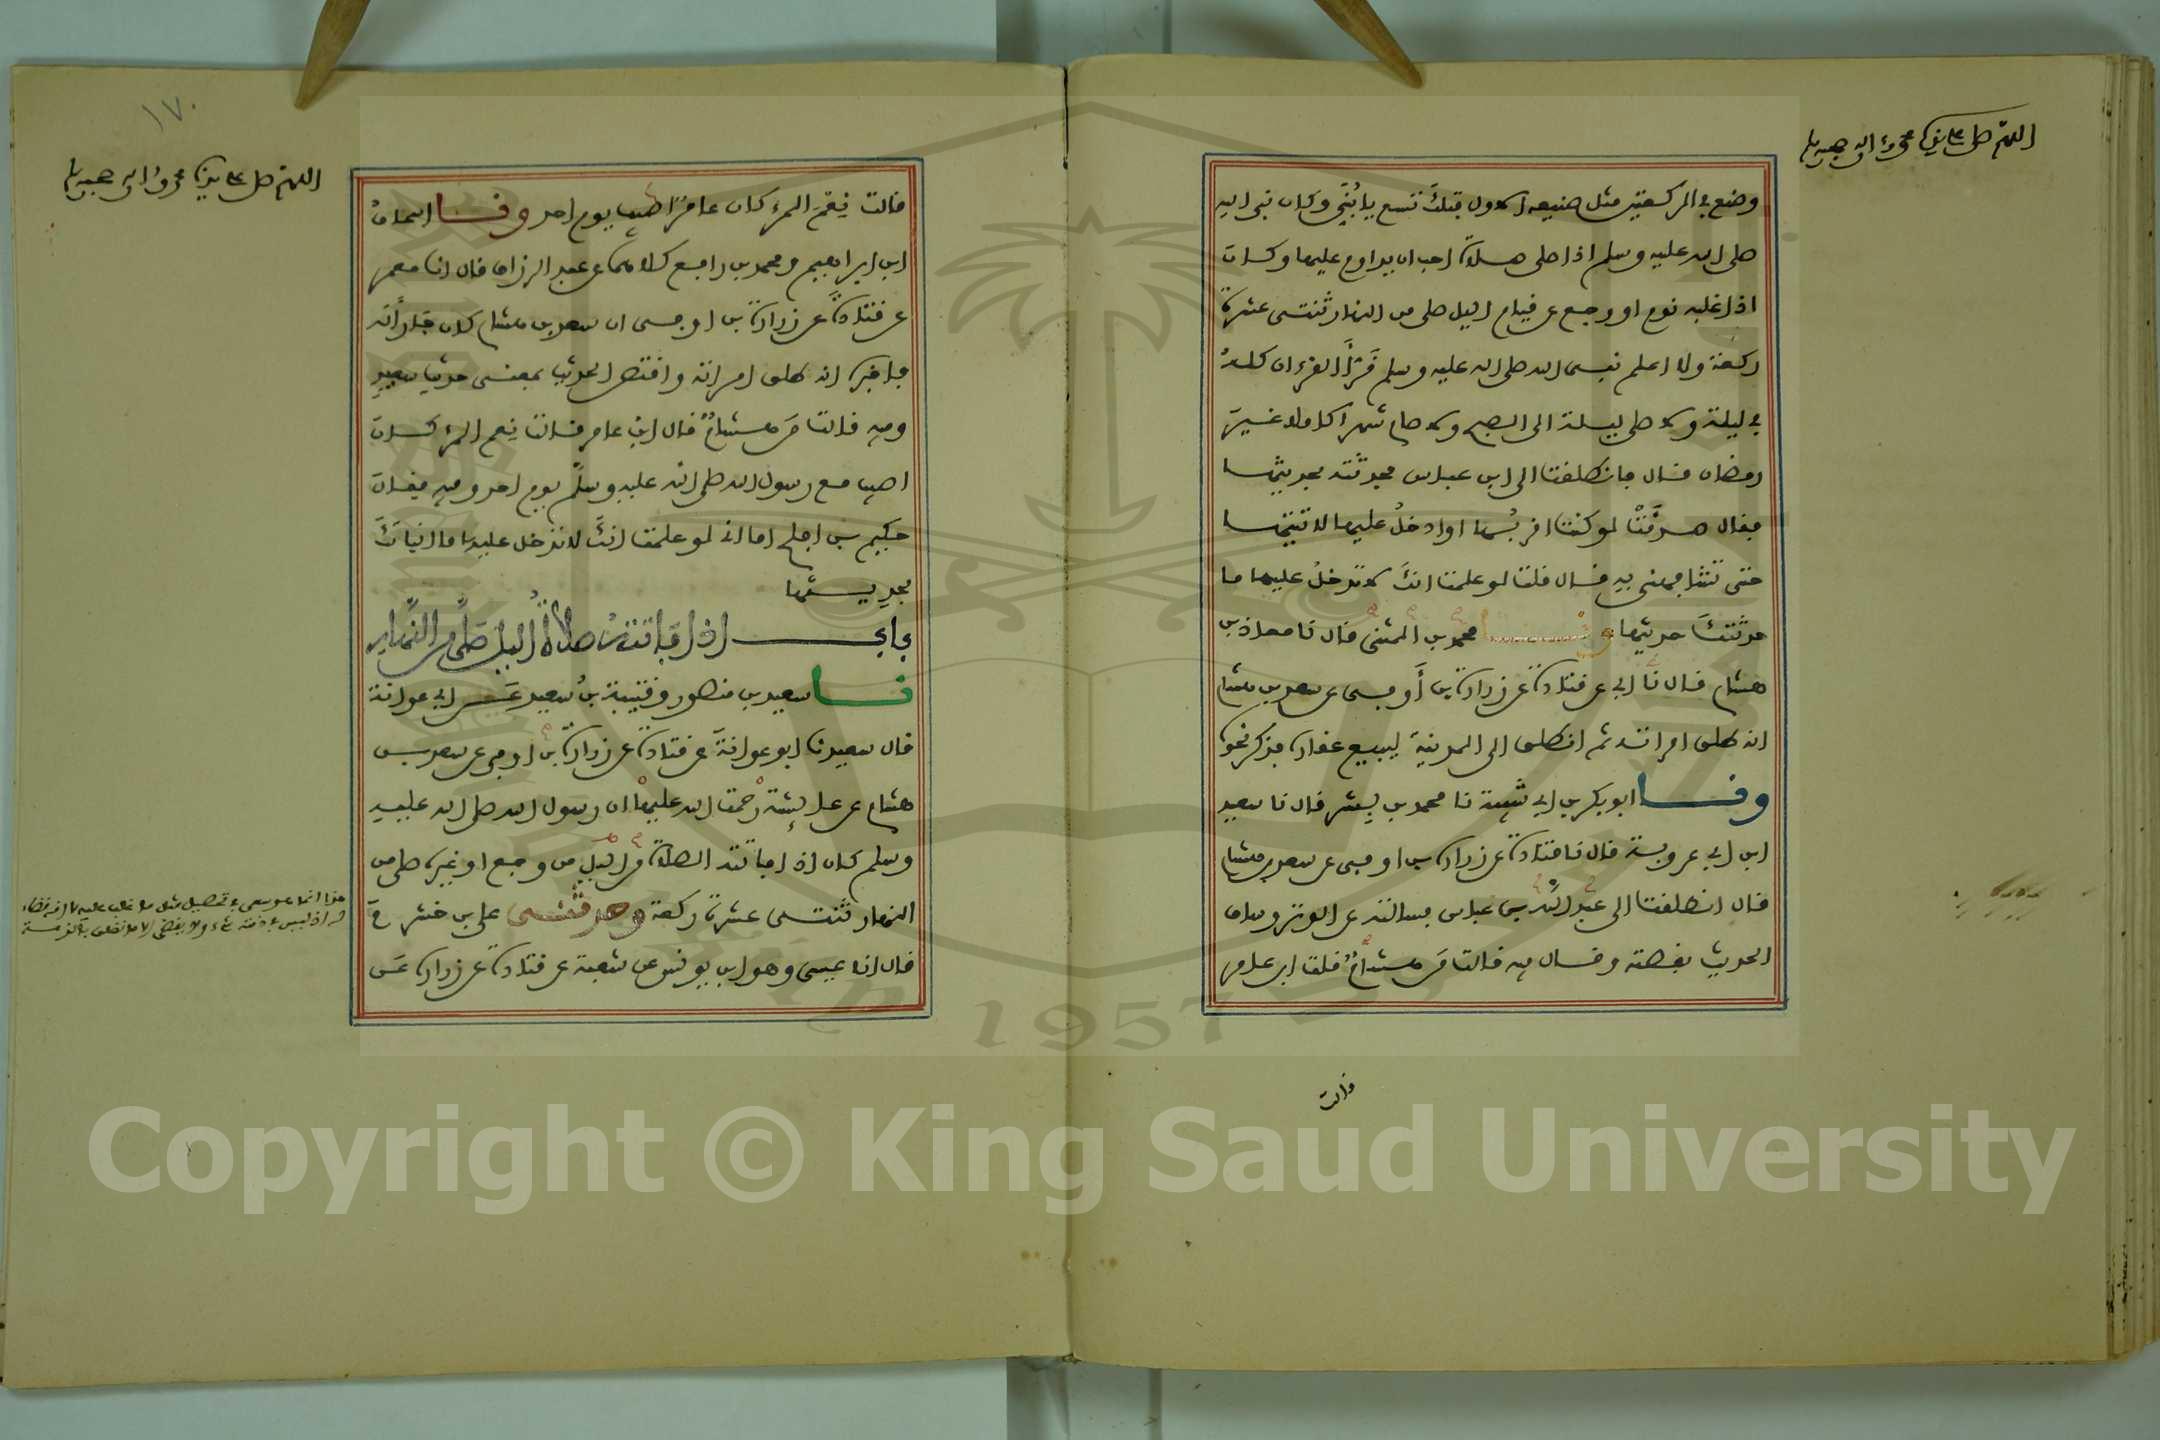 اللهم صل على سيدنا محمد وءاله وصحبه وسلم
وصنع في الركعتين مثل صنيعه الاول فتلك تسع يا بُنَيَّ وكان نبي الله
صلى الله عليه وسلم اذا صلى صلاة احب ان يداوم عليها وكان
اذا غلبه نوم او وجع عن قيام اليل صلى من النهار ثنتى عشرة
ركعة ولا اعلم نبي الله صلى الله عليه وسلم قرأ القرءان كله
في ليلة ولا صلى ليلة الى الصبح ولا صام شهرا كاملا غير
رمضان قال فانطلقت الى ابن عباس فحدثته بحديثها
فقال صدقت لو كنت اقربها او ادخل عليها لاتيتها
حتى تشافهني به قال قلت لو علمت انك لا تدخل عليها ما
حدثتك حديثها وحدثنا محمد بن المثنى قال نا معاذ بن
هشام قال نا ابي عن قتادة عن زرارة بن أوفى عن سعد بن هشام
انه طلق امراته ثم انطلق الى المدينة ليبيع عقاره فذكر نحوه
ونا ابو بكر بن ابي شيبة نا محمد بن بشر قال نا سعيد
ابن ابي عروبة قال نا قتادة عن زرارة بن اوفى عن سعد بن هشام
قال انطلقت الى عبد الله بن عباس فسالته عن الوتر وساق
الحديث بقصته وقال فيه قالت من هشام قلت ابن عامر
قالت
١٧٠
اللهم صل على سيدنا محمد وءاله وصحبه وسلم
قالت نِعْمَ المرء كان عامرٌ اصيب يوم احد ونا اسحاق
ابن ابراهيم ومحمد بن رافع كلاهما عن عبد الرزاق قال انا معمر
عن قتادة عن زرارة بن اوفى ان سعد بن هشام كان جار له
فاخبره انه طلق امراته واقتص الحديث بمعنى حديث سعيد
وفيه قالت من هشام قال ابن عامر قالت نعم المرء كان
اصيب مع رسول الله صلى الله عليه وسلم يوم احد وفيه فقال
حكيم بن افلح اما اني لو علمت انك لا تدخل عليها ما انباتك
بحديثها
باب اذا فاتته صلاة اليل صلى من النهار
نا سعيد بن منصور وقتيبة بن سعيد عن ابي عوانة
قال سعيد نا ابو عوانة عن قتادة عن زرارة بن اوفى عن سعد بن
هشام عن عايشة رحمت الله عليها ان رسول الله صلى الله عليه
وسلم كان اذا فاتته الصلاة من اليل من وجع او غيره صلى من
النهار ثنتى عشرة ركعة وحدثنى علي بن خشرم
قال انا عيسى وهو ابن يونس عن شعبة عن قتادة عن زرارة عن
Copyright © King Saud University
1957